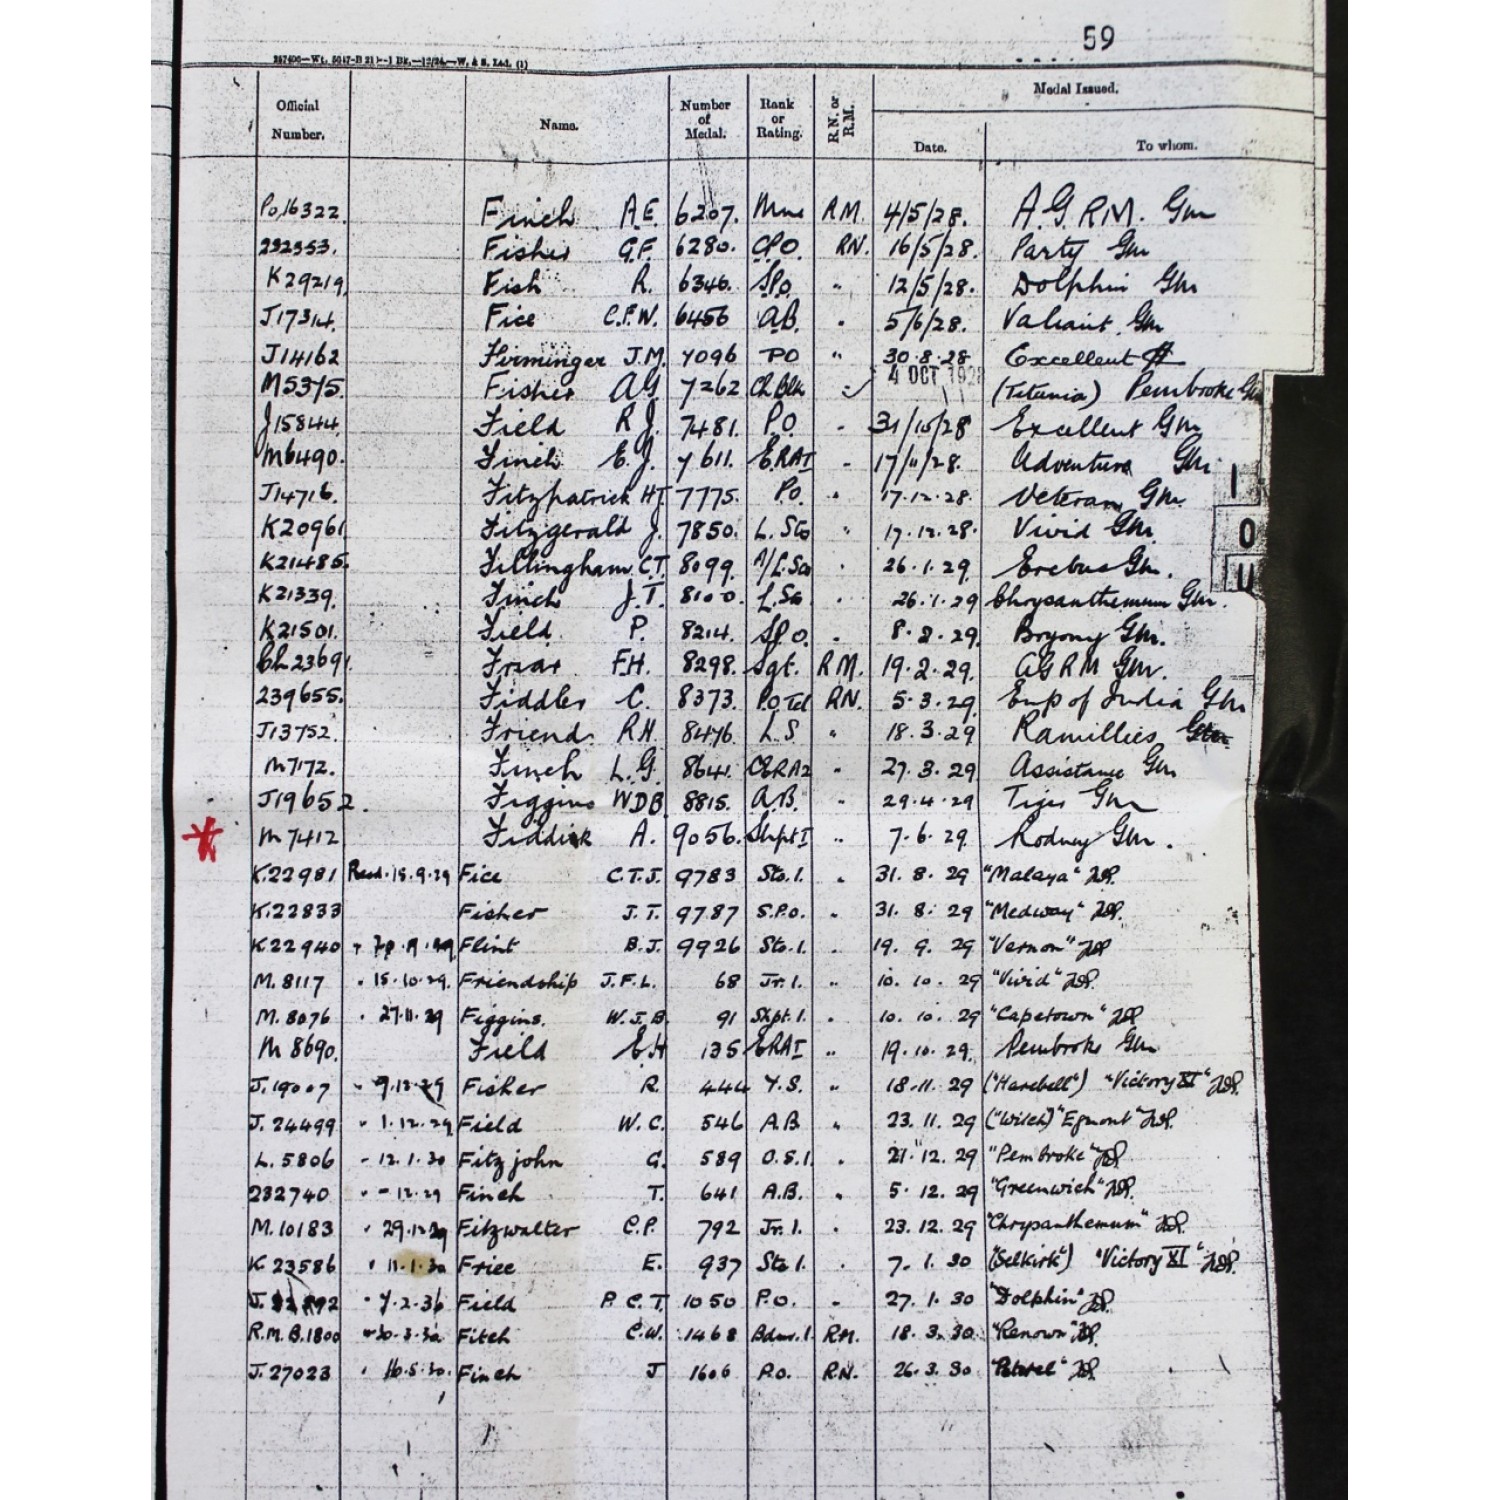 59
Medal Issued.
Official Number. Name. Number of Medal. Rank or Rating. R.N. or R.M. Date. To whom.
Po,16322. Finch A.E. 6207. Mne R.M. 4/5/28. A.G.R.M. Gm
232353. Fisher G.F. 6280. C.P.O. RN. 16/5/28. Party Gm
K29219. Fish R. 6346. S.P.O. " 12/5/28. Dolphin Gm
J17314. Fice C.F.W. 6456 A.B. " 5/6/28. Valiant Gm
J14162 Firminger J.M. 7096 PO " 30.8.28 Excellent
M5375. Fisher A.G. 7262 Ch Blk 4 OCT 1928 (Titania) Pembroke Gm
J15844. Field R.J. 7481. P.O. " 31/10/28 Excellent Gm
M6490. Finch E.J. 7611. ERAI " 17/11/28. Adventure Gm
J14716. Fitzpatrick HJ 7775. P.O. " 17.12.28. Veteran Gm
K20961 Fitzgerald J. 7850. L. Sto " 17.12.28. Vivid Gm.
K21485. Fillingham C.T. 8099. A/L.Sto " 26.1.29. Erebus Gm.
K21339. Finch J.T. 8100. L.Sto " 26.1.29 Chrysanthemum Gm.
K21501. Field P. 8214. S.P.O. " 8.2.29. Bryony Gm.
Ch 23691. Friar F.H. 8298. Sgt. R.M. 19.2.29. AGRM Gm.
239655. Fiddler C. 8373. P.O.Tel RN. 5.3.29. Emp of India Gm
J13752. Friend R.H. 8476. L.S " 18.3.29 Ramillies Gm
M7172. Finch L.G. 8641. CERA2 " 27.3.29 Assistance Gm
J19652. Figgins WDB 8815. A.B. " 29.4.29 Tiger Gm
M7412 Fiddick A. 9056. Shpt I " 7.6.29. Rodney Gm.
K.22981 Recd.15.9.29 Fice C.T.J. 9783 Sto.1. " 31.8.29 "Malaya"
K.22833 Fisher J.T. 9787 S.P.O. " 31.8.29 "Medway"
K22940 Flint B.J. 9926 Sto.1. " 19.9.29 "Vernon"
M.8117 " 15.10.29. Friendship J.F.L. 68 Jr.1. " 10.10.29 "Vivid"
M.8076 " 27.11.29 Figgins. W.J.B. 91 Shpt.1. " 10.10.29 "Capetown"
M8690. Field E.H 135 ERAI " 19.10.29. Pembroke Gm
J.19007 " 9.12.29 Fisher R. 444 Y.S. " 18.11.29 ("Harebell") "Victory XI"
J.24499 " 1.12.29 Field W.C. 546 A.B " 23.11.29 ("Witch") "Egmont"
L.5806 " 12.1.30 Fitzjohn G. 589 O.S.1. " 21.12.29 "Pembroke"
232740 " - 12.29 Finch T. 641 A.B. " 5.12.29 "Greenwich"
M.10183 " 29.12.29 Fitzwalter C.P. 792 Jr.1. " 23.12.29 "Chrysanthemum"
K 23586 " 11.1.30 Friee E. 937 Sto 1. " 7.1.30 (Selkirk") "Victory XI"
Field P.C.T. 1050 P.O. " 27.1.30 "Dolphin"
R.M.B.1800 " 30.3.30 Fitch C.W. 1468 Bdmr.1 R.M. 18.3.30 "Renown"
J.27023 " 16.5.30. Finch J 1606 P.O. R.N. 26.3.30 "Petrel"
I
O
U